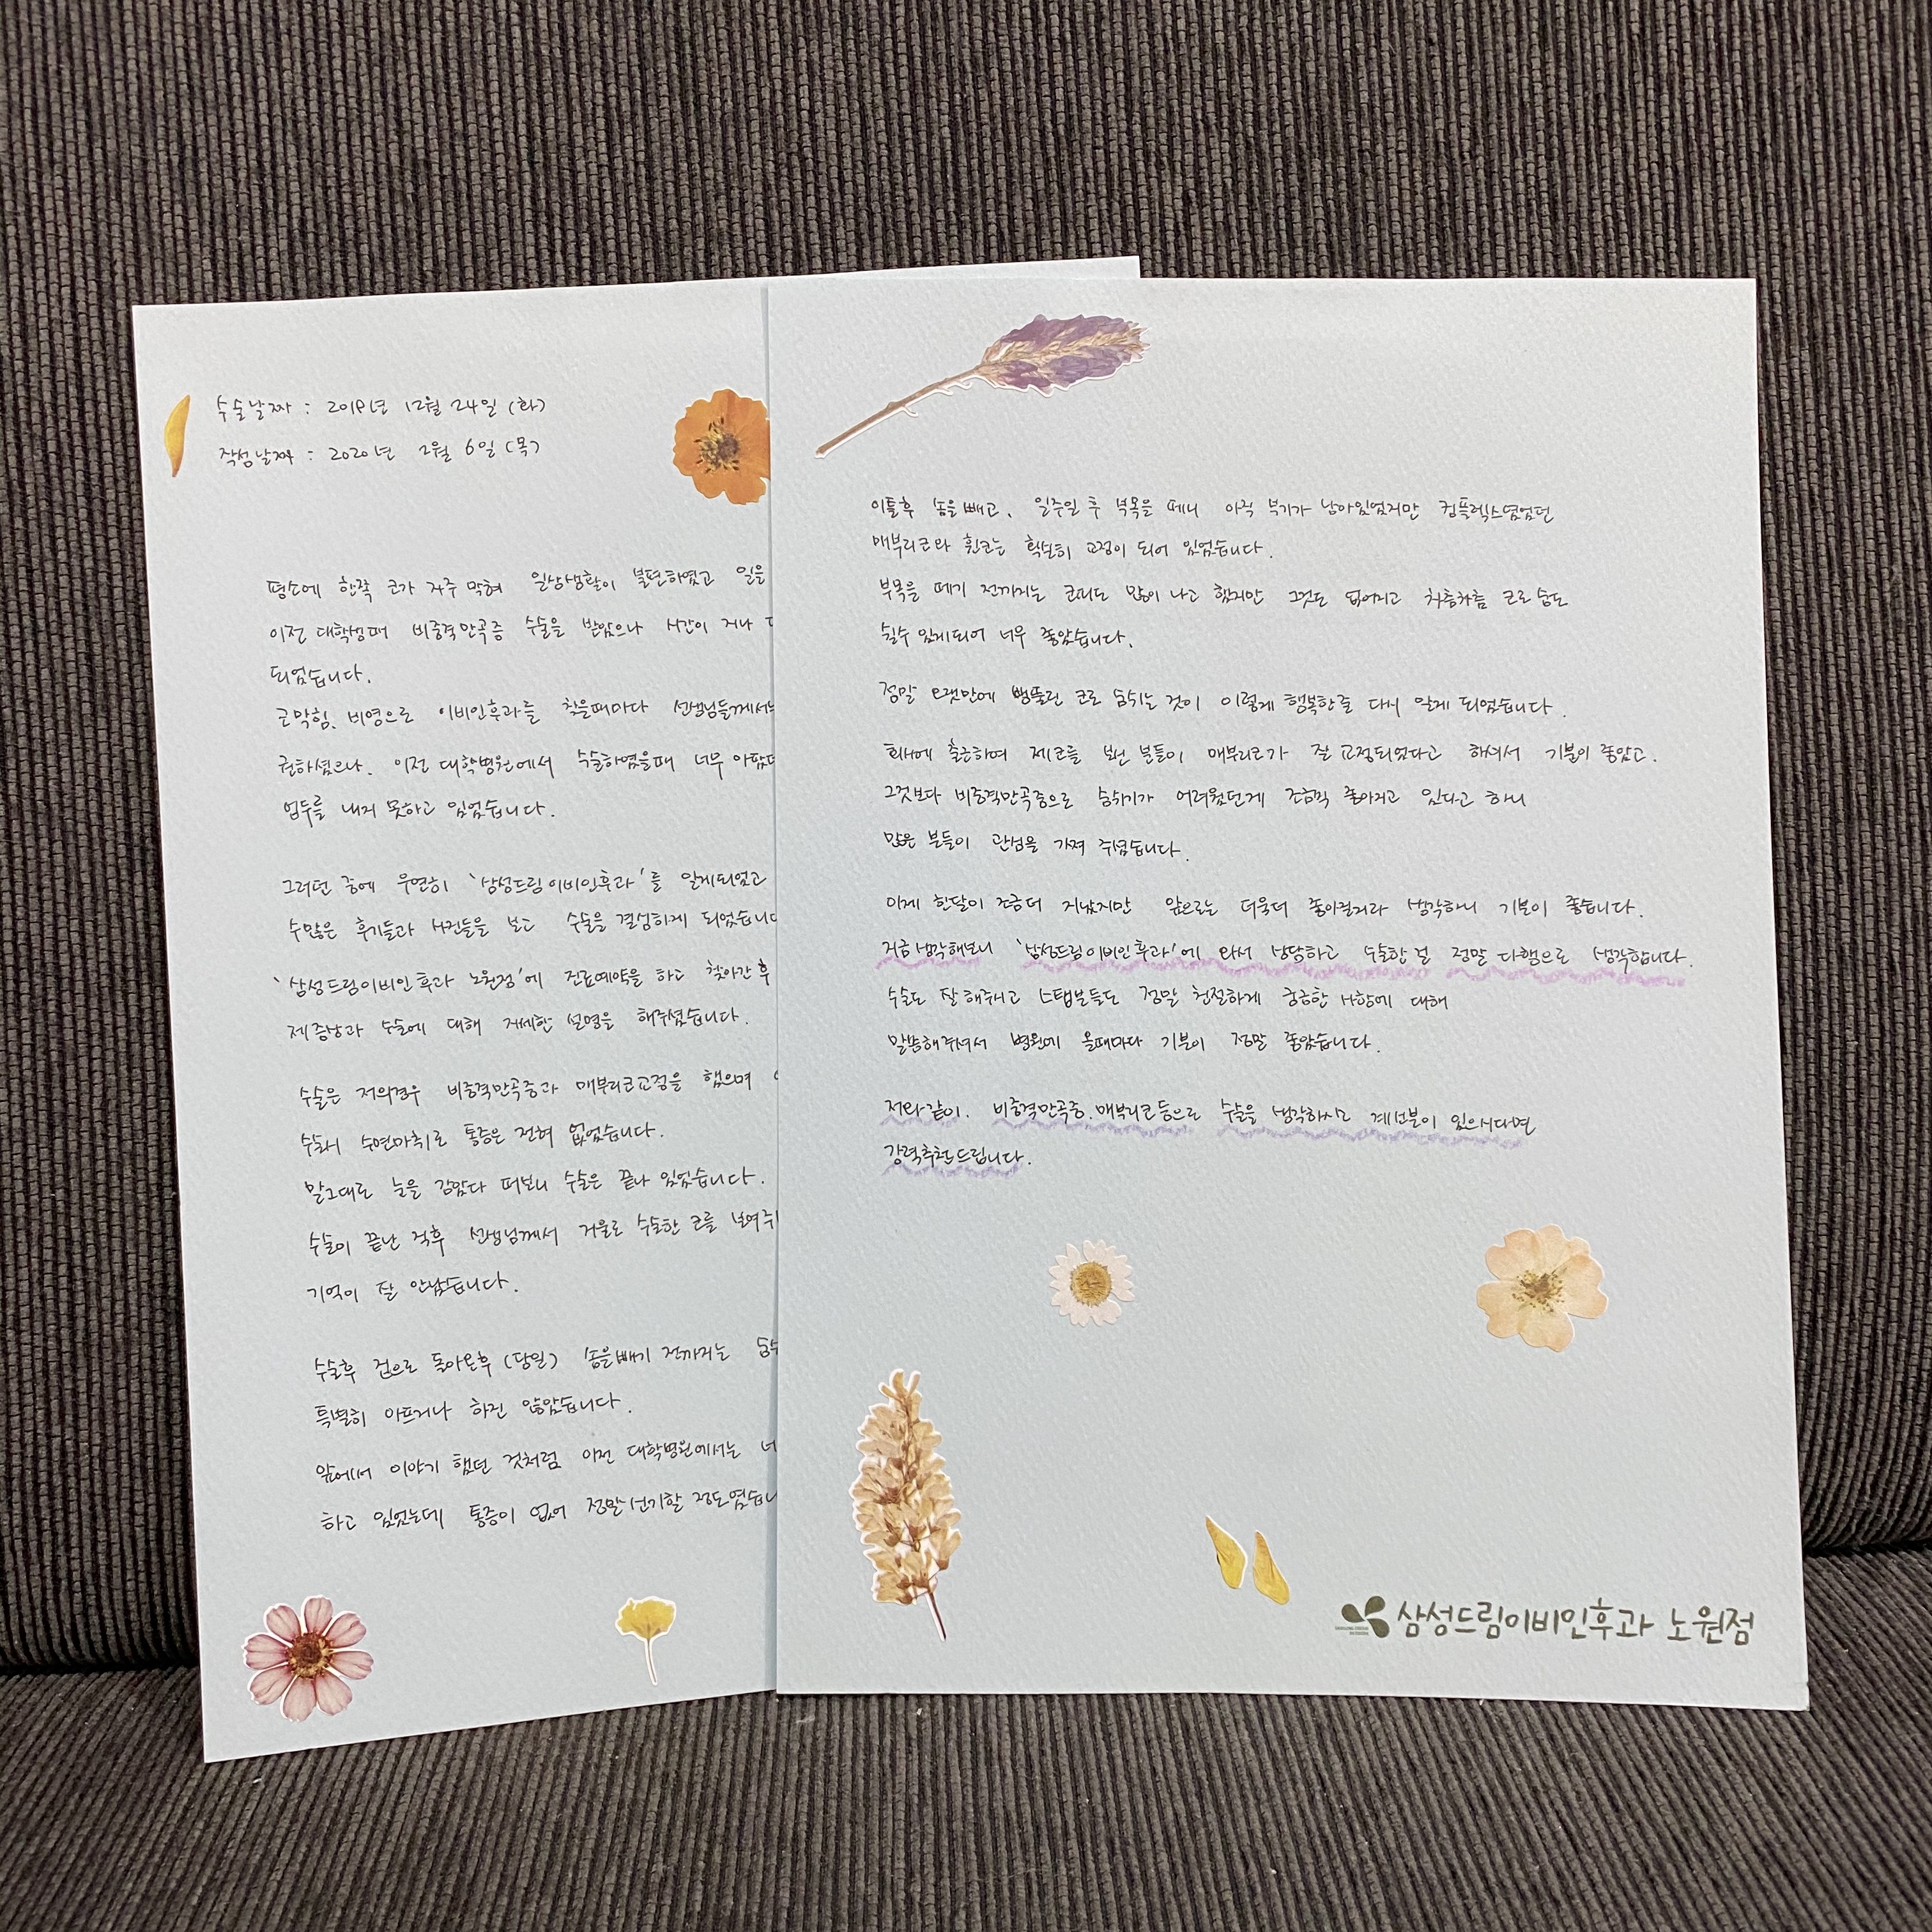 수술날짜 : 2019년 12월 24일 (화)
작성날짜 : 2020년 2월 6일 (목)
평소에 한쪽 코가 자주 막혀 일상생활이 불편하였고 일을
이전 대학생때 비중격만곡증 수술을 받았으나 시간이 지나
되었습니다.
코막힘, 비염으로 이비인후과를 찾을때마다 선생님들께서는
권하셨으나, 이전 대학병원에서 수술하였을때 너무 아팠
엄두를 내지 못하고 있었습니다.
그러던 중에 우연히 '삼성드림이비인후과'를 알게되었고
수많은 후기들과 사진들을 보고 수술을 결심하게 되었습니다
'삼성드림이비인후과 노원점'에 진료예약을 하고 찾아간 후
제 증상과 수술에 대해 자세한 설명을 해주셨습니다.
수술은 저의경우 비중격만곡증과 매부리코교정을 했으며
수술시 수면마취로 통증은 전혀 없었습니다.
말그대로 눈을 감았다 떠보니 수술은 끝나 있었습니다.
수술이 끝난 직후 선생님께서 거울로 수술한 코를 보여주
기억이 잘 안났습니다.
수술후 집으로 돌아온후 (당일) 솜을빼기 전까지는 숨
특별히 아프거나 하진 않았습니다.
앞에서 이야기 했던 것처럼 이전 대학병원에서는 너
하고 있었는데 통증이 없어 정말 신기할 정도였습니
이틀후 솜을빼고, 일주일 후 부목을 떼니 아직 붓기가 남아있었지만 컴플렉스였었던
매부리코와 휜코는 확실히 교정이 되어 있었습니다.
부목을 떼기 전까지는 코피도 많이 나고 했지만 그것도 없어지고 차츰차츰 코로 숨도
쉴수 있게되어 너무 좋았습니다.
정말 오랫만에 뻥뚫린 코로 숨쉬는 것이 이렇게 행복한줄 다시 알게 되었습니다.
회사에 출근하여 제코를 보신 분들이 매부리코가 잘 교정되었다고 하셔서 기분이 좋았고,
그것보다 비중격만곡증으로 숨쉬기가 어려웠던게 조금씩 좋아지고 있다고 하니
많은 분들이 관심을 가져 주셨습니다.
이제 한달이 조금더 지났지만 앞으로는 더욱더 좋아질거라 생각하니 기분이 좋습니다.
지금 생각해보니 '삼성드림이비인후과'에 와서 상담하고 수술한 걸 정말 다행으로 생각합니다.
수술도 잘 해주시고 스탭분들도 정말 친절하게 궁금한 사항에 대해
말씀해주셔서 병원에 올때마다 기분이 정말 좋았습니다.
저와 같이, 비중격만곡증, 매부리코등으로 수술을 생각하시고 계신분이 있으시다면
강력추천드립니다.
삼성드림이비인후과 노원점